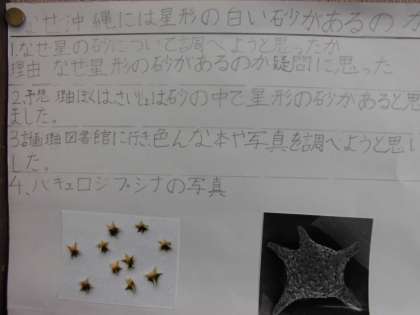 なぜ沖縄には星形の白い砂があるのか
1.なぜ星の砂について調べようと思ったか
理由 なぜ星形の砂があるのか疑問に思った
2.予想 理由ぼくはさいしょは砂の中で星形の砂があると思い
ました。
3.計画 理由図書館に行き、色んな本や写真を調べようと思い
した。
4、バキュロジプシナの写真